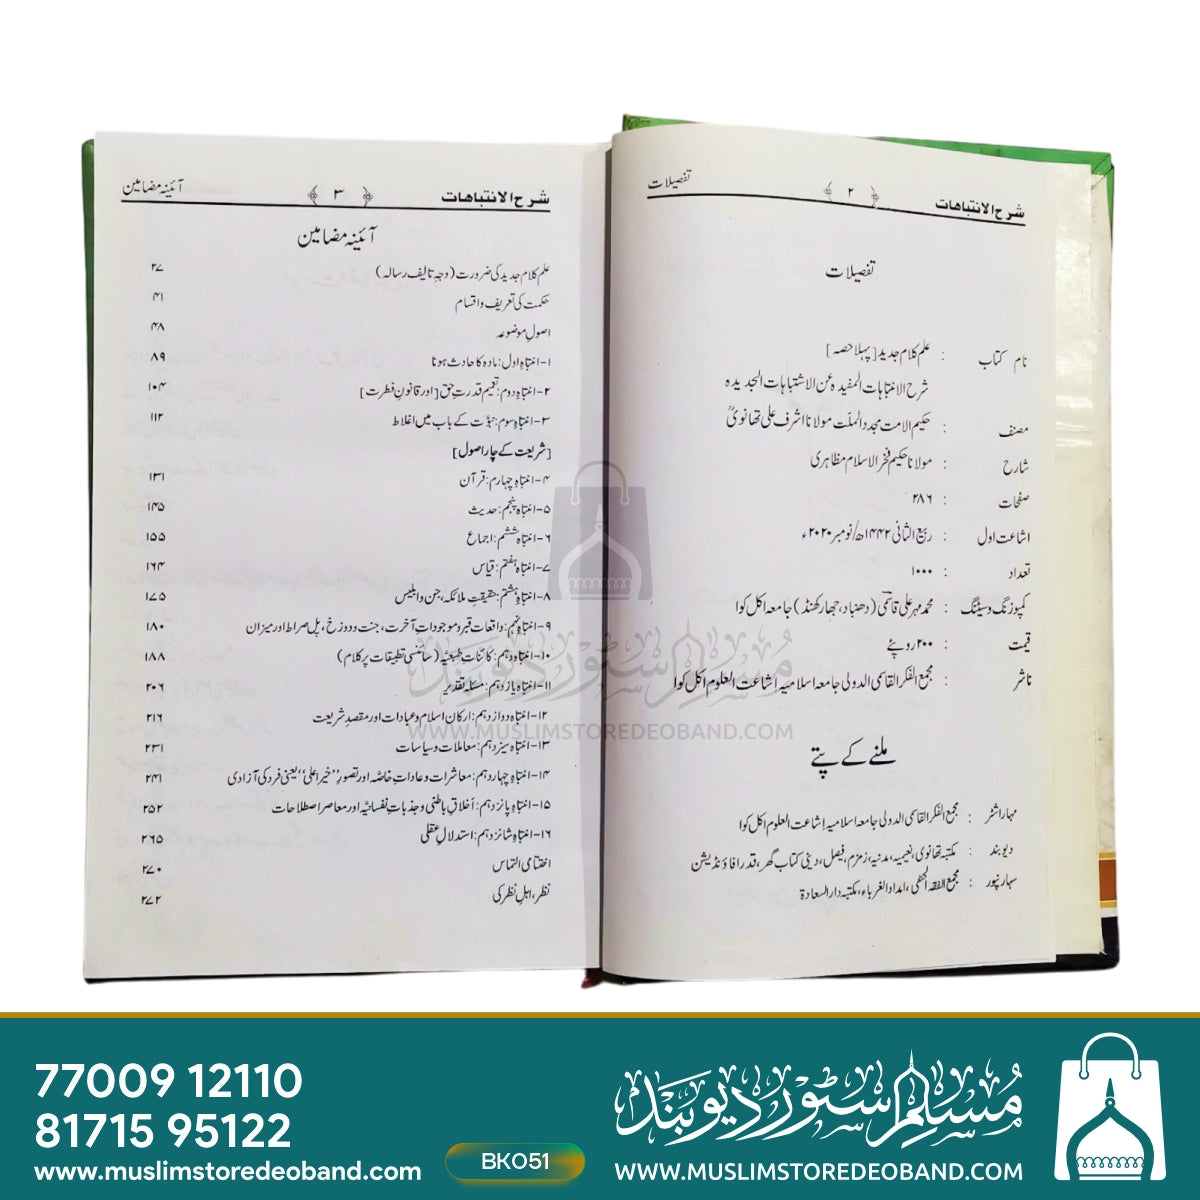 شرح الانتباهات ۲ تفصیلات
تفصیلات
نام کتاب : علم کلام جدید [پہلا حصہ]
شرح الانتباہات المفیدہ عن الاشتباہات الجدیدہ
مصنف : حکیم الامت مجدد الملّت مولانا اشرف علی تھانویؒ
شارح : مولانا حکیم فخر الاسلام مظاہری
صفحات : ۲۸۶
اشاعت اول : ربیع الثانی ۱۴۴۲ھ/نومبر ۲۰۲۰ء
تعداد : ۱۰۰۰
کمپوزنگ وسیٹنگ : محمد مہر علی قاسمی (دھنباد، جھارکھنڈ) جامعہ اکل کوا
قیمت : ۲۰۰ روپئے
ناشر : مجمع الفکر القاسمی الدولی جامعہ اسلامیہ اشاعت العلوم اکل کوا
ملنے کے پتے
مہاراشٹر : مجمع الفکر القاسمی الدولی جامعہ اسلامیہ اشاعت العلوم اکل کوا
دیوبند : مکتبہ تھانوی، نعیمیہ، مدنیہ، زمزم، فیصل، دینی کتاب گھر، قدرا فاؤنڈیشن
سہارنپور : مجمع الفقہ الحنفی، امداد الغرباء، مکتبہ دار السعادة
شرح الانتباهات ۳ آئینہ مضامین
آئینہ مضامین
علم کلام جدید کی ضرورت (وجہِ تالیف رسالہ) ۲۷
حکمت کی تعریف واقسام ۴۱
اصولِ موضوعہ ۴۸
۱- انتباہِ اول: مادہ کا حادث ہونا ۸۹
۲- انتباہ دوم: تعمیم قدرتِ حق [اور قانونِ فطرت] ۱۰۴
۳- انتباہ سوم: نبوّت کے باب میں اغلاط ۱۱۲
[شریعت کے چار اصول]
۴- انتباہِ چہارم: قرآن ۱۳۱
۵- انتباہ پنجم: حدیث ۱۴۵
۶- انتباہ ششم: اجماع ۱۵۵
۷- انتباہ ہفتم: قیاس ۱۶۴
۸- انتباہِ ہشتم: حقیقتِ ملائکہ، جن وابلیس ۱۷۵
۹- انتباہ نہم: واقعات قبر وموجوداتِ آخرت، جنت ودوزخ، پل صراط اور میزان ۱۸۰
۱۰- انتباہ دہم: کائناتِ طبعیہ (سائنسی تطبیقات پر کلام) ۱۸۸
۱۱- انتباہ یازدہم: مسئلہ تقدیر ۲۰۶
۱۲- انتباہ دوازدہم: ارکان اسلام وعبادات اور مقصدِ شریعت ۲۱۶
۱۳- انتباہ سیزدہم: معاملات وسیاسات ۲۳۱
۱۴- انتباہِ چہاردہم: معاشرات وعاداتِ خاصّہ اور تصورِ ”خیرِ اعلیٰ“ یعنی فرد کی آزادی ۲۴۱
۱۵- انتباہ پانزدہم: اَخلاقِ باطنی وجذباتِ نفسانیّہ اور معاصر اصطلاحات ۲۵۲
۱۶- انتباہ شانزدہم: استدلالِ عقلی ۲۶۵
اختتامی التماس ۲۷۰
نظر، اہلِ نظر کی ۲۷۲
مسلم سٹور دیوبند
WWW.MUSLIMSTOREDEOBAND.COM
77009 12110
81715 95122
www.muslimstoredeoband.com
BK051
مسلم سٹور دیوبند
WWW.MUSLIMSTOREDEOBAND.COM